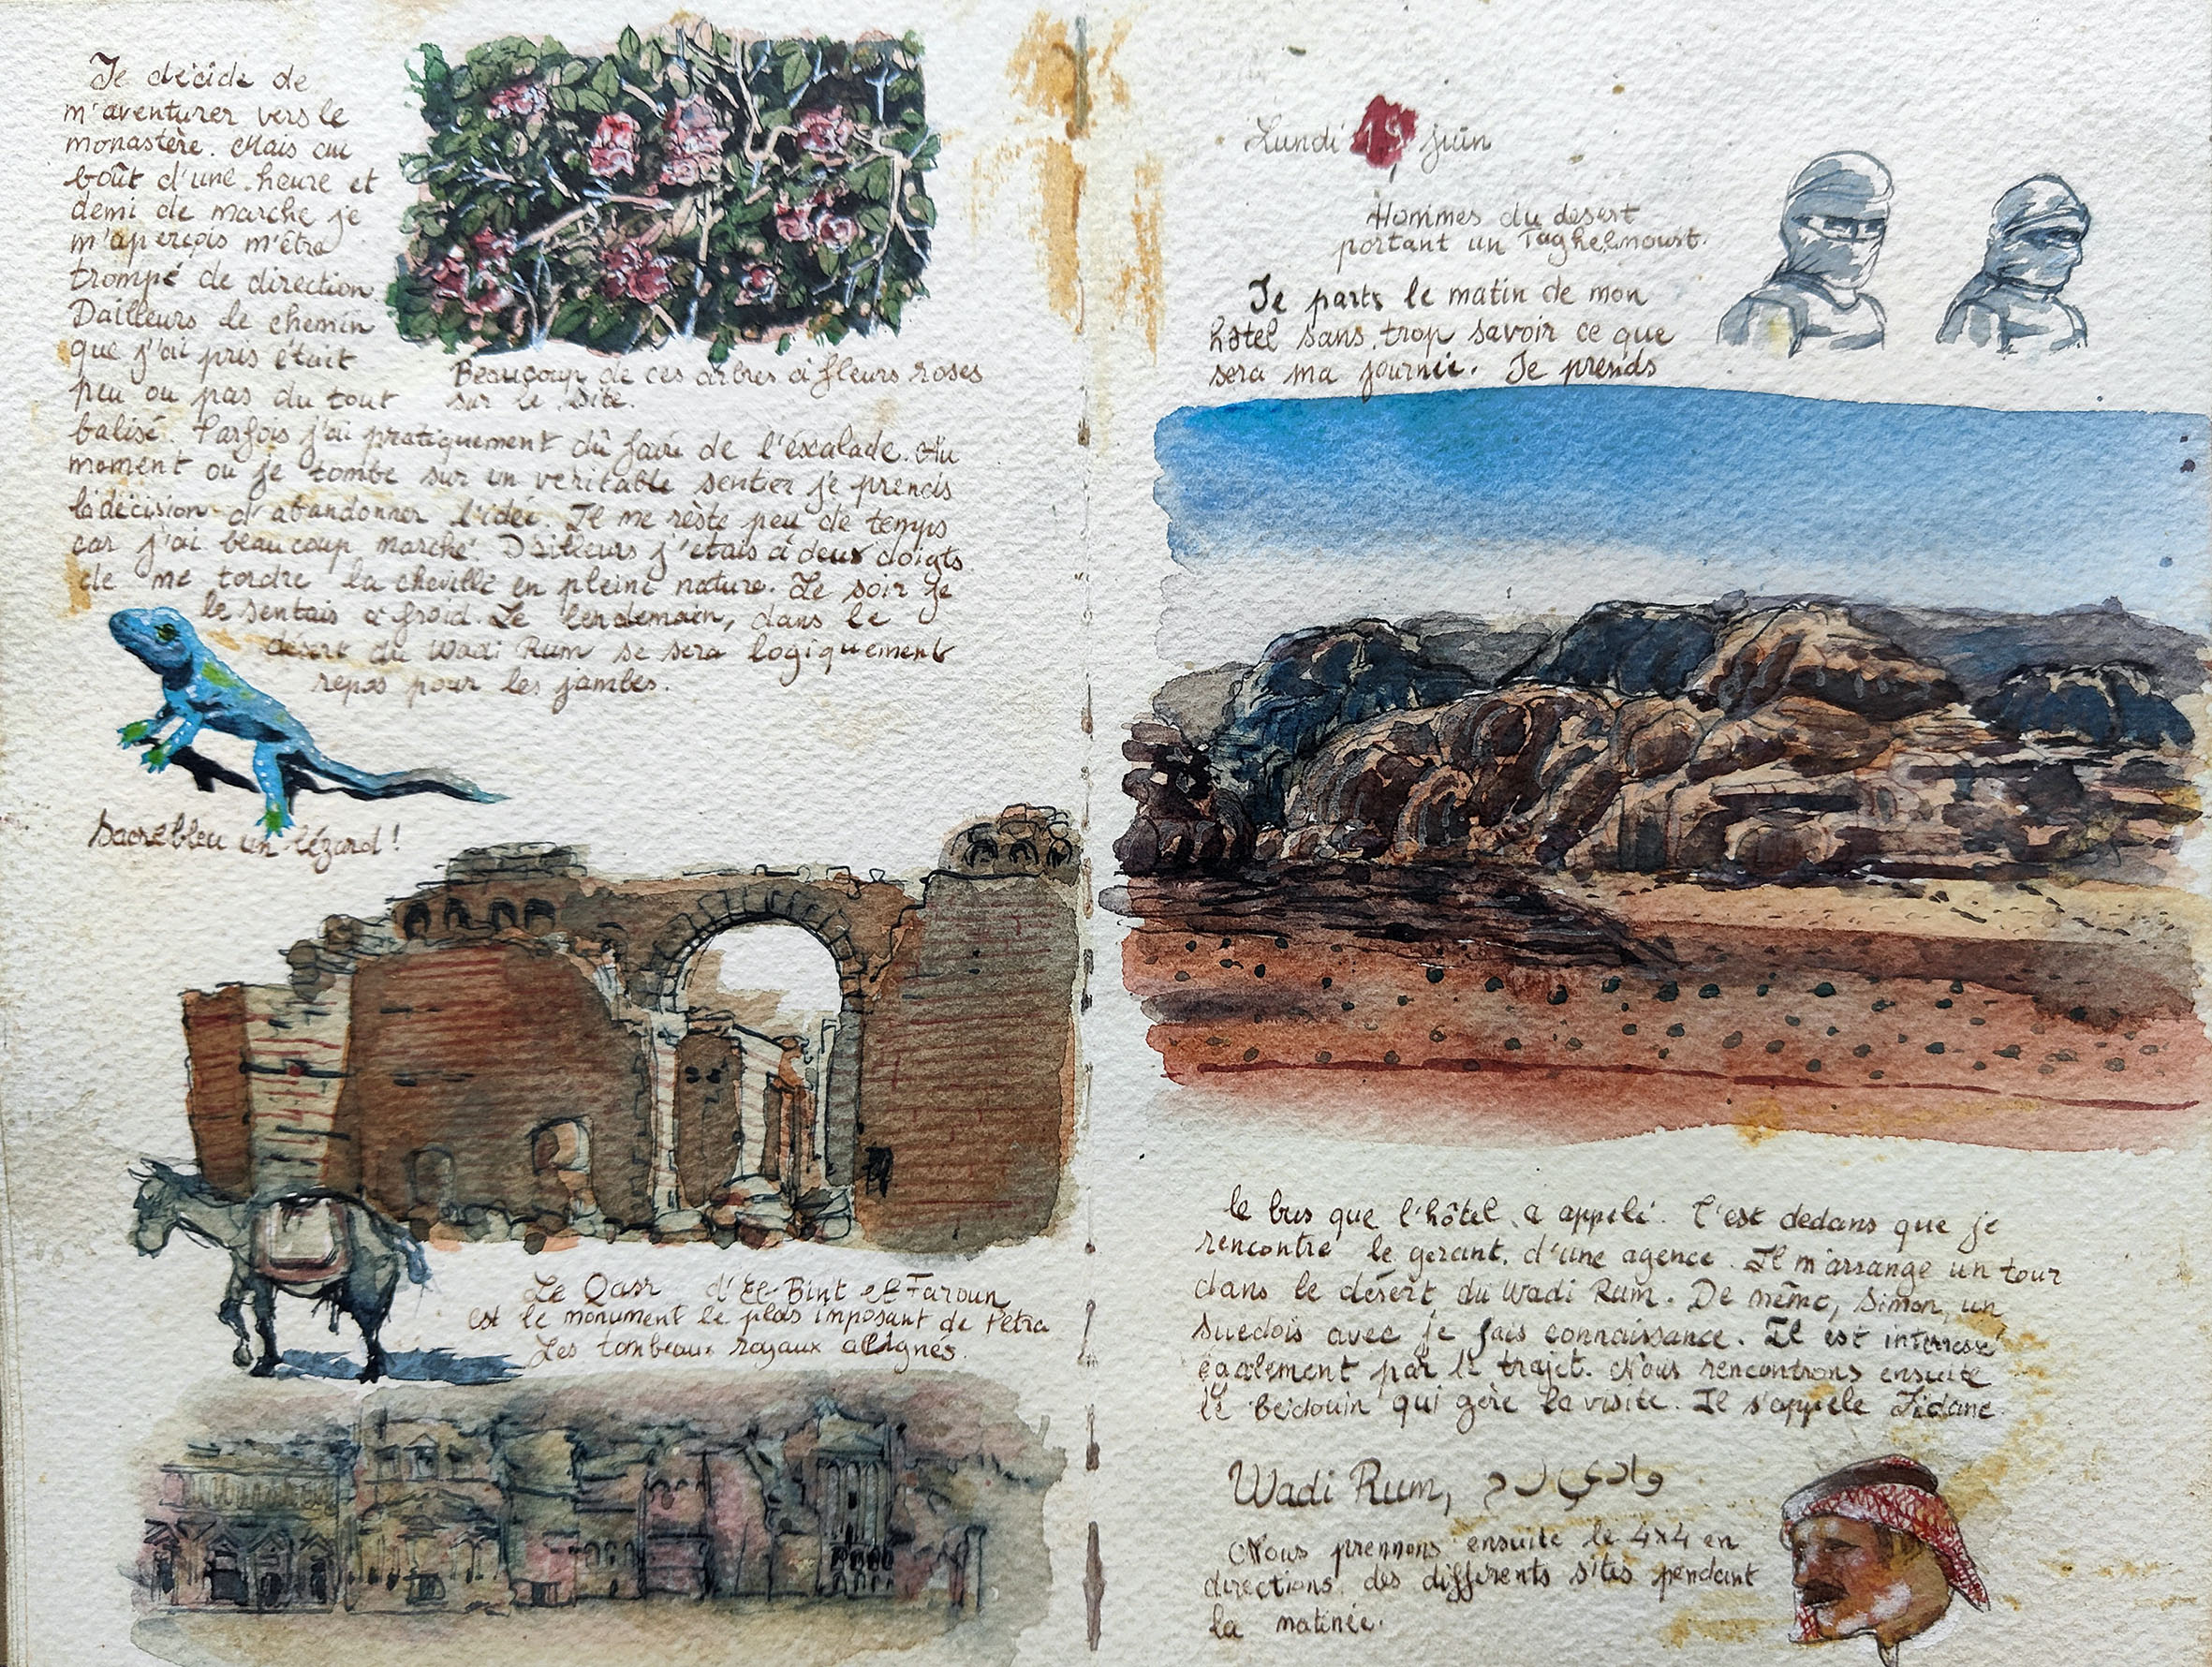 Je décide de
m'aventurer vers le
monastère. Mais au
boût d'une heure et
demi de marche je
m'aperçois m'être
trompé de direction
Dailleurs le chemin
que j'ai pris était
peu ou pas du tout
balisé. Parfois j'ai pratiquement dû faire de l'éscalade. Au
moment ou je tombe sur un veritable sentier je prends
la décision d'abandonner l'idée. Il me rèste peu de temps
car j'ai beaucoup marché. D'ailleurs j'étais à deux doigts
de me tordre la cheville en pleine nature. Le soir je
le sentais à froid. Le lendemain, dans le
désert du Wadi Rum se sera logiquement
repos pour les jambes.
Beaucoup de ces arbres à fleurs roses
sur le site.
Sacrebleu un lézard!
Le Qasr d'El-Bint el Faroun
est le monument le plus imposant de Petra
Les tombeaux royaux alignés.
Lundi 19 juin
Hommes du desert
portant un Taghelmoust.
Je parts le matin de mon
hôtel sans trop savoir ce que
sera ma journée. Je prends
le bus que l'hôtel a appelé. C'est dedans que je
rencontre le gerant d'une agence. Il m'arrange un tour
dans le désert du Wadi Rum. De même, Simon, un
suedois avec je fais connaissance. Il est interressé
également par le trajet. Nous rencontrons ensuite
le bédouin qui gère la visite. Il s'appele Zidane.
Wadi Rum, وادي رم
Nous prennons ensuite le 4x4 en
directions des differents sites pendant
la matinée.